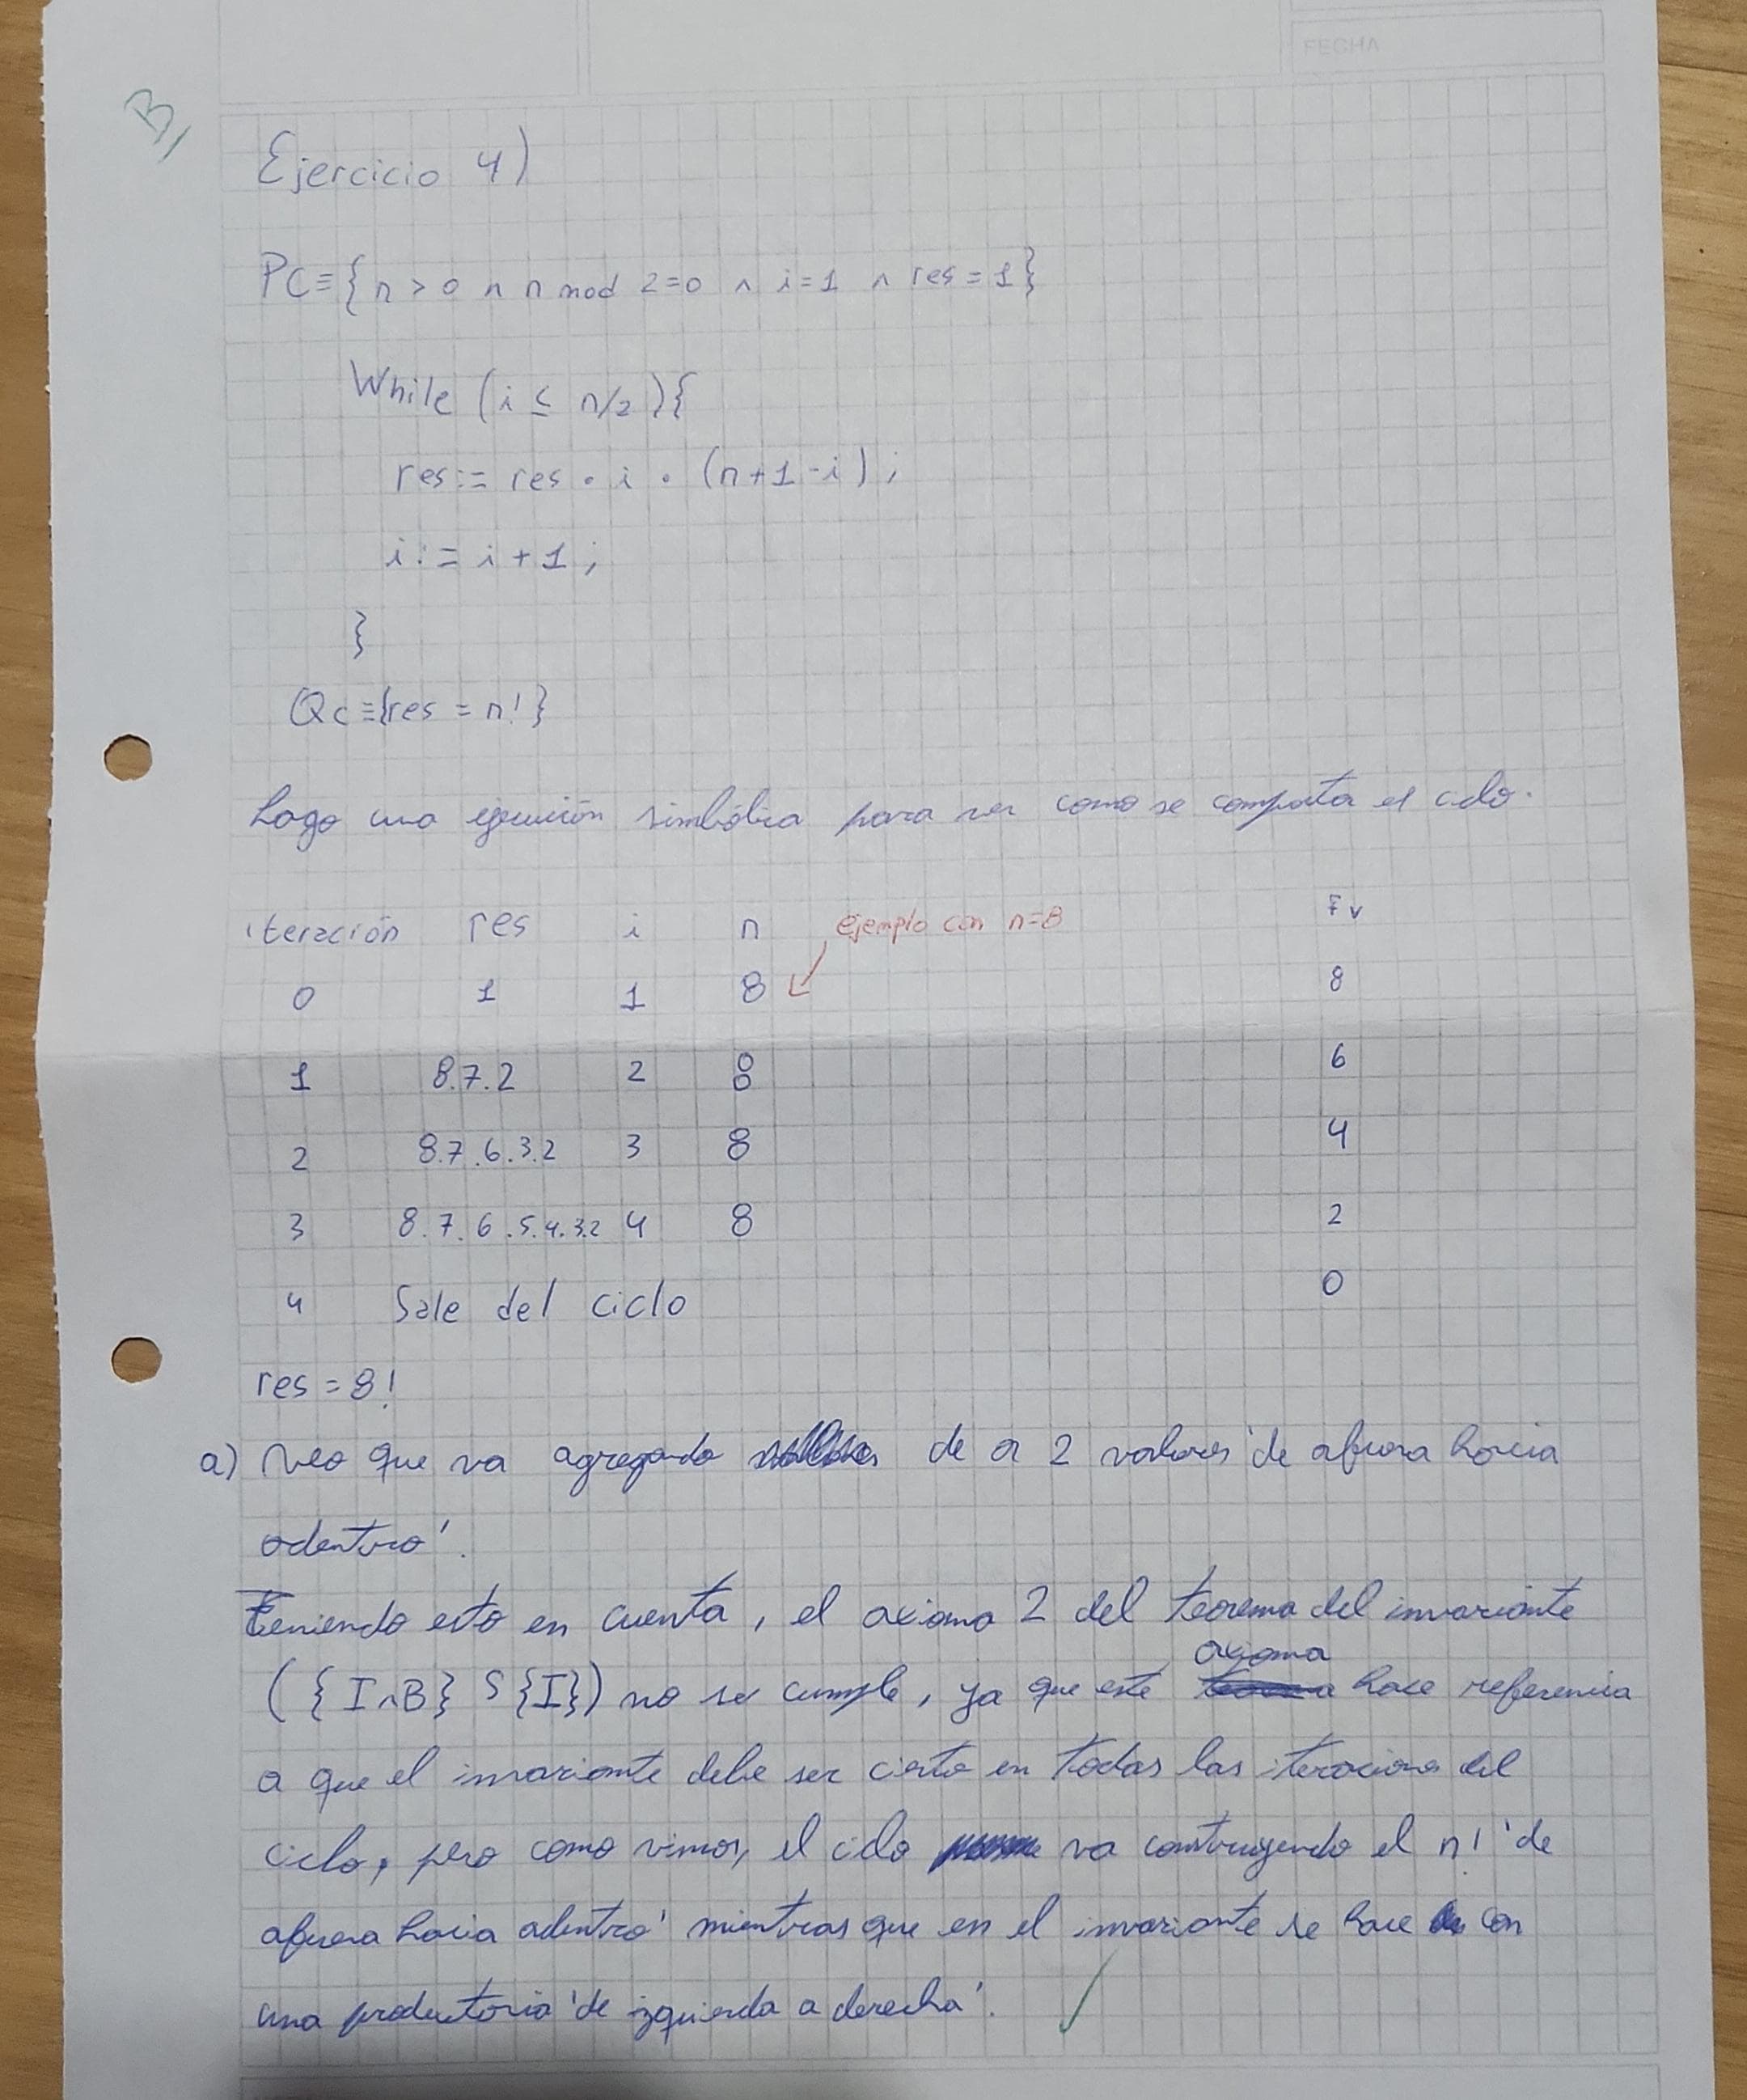 FECHA
B
Ejercicio 4)
PC≡{n > 0 ∧ n mod 2=0 ∧ i=1 ∧ res = 1}
While (i ≤ n/2){
res:= res • i • (n+1-i);
i:= i+1;
}
Qc≡{res = n!}
hago una ejecución simbólica para ver como se comporta el ciclo.
iteración res i n ejemplo con n=8 Fv
0 1 1 8 8
1 8.7.2 2 8 6
2 8.7.6.3.2 3 8 4
3 8.7.6.5.4.3.2 4 8 2
4 Sale del ciclo 0
res = 8!
a) veo que va agregando de a 2 valores 'de afuera hacia
adentro'.
Teniendo esto en cuenta, el axioma 2 del teorema del invariante
({I∧B} S {I}) no se cumple, ya que este axioma hace referencia
a que el invariante debe ser cierto en todas las iteraciones del
ciclo, pero como vimos, el ciclo va construyendo el n! 'de
afuera hacia adentro' mientras que en el invariante se hace con
una productoria 'de izquierda a derecha'.